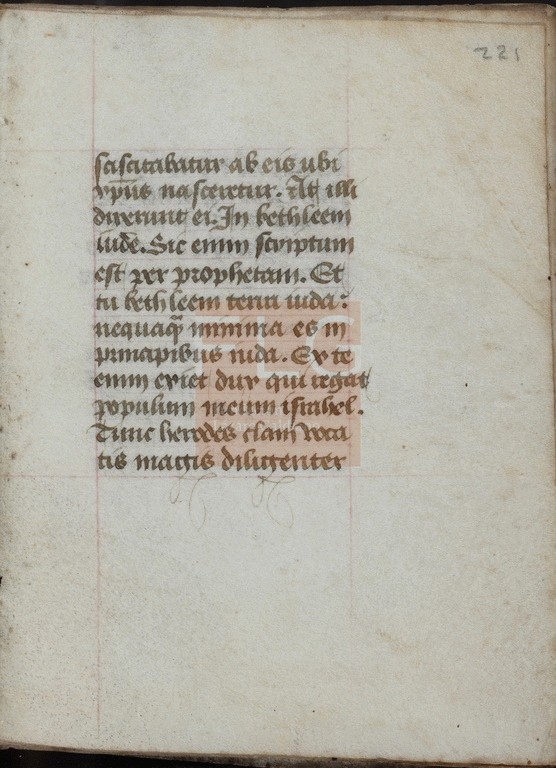 221
sciscitabatur ab eis ubi
xp̄us nasceretur. At illi
dixerunt ei. In bethleem
iude. Sic enim scriptum
est per prophetam. Et
tu bethleem terra iuda:
nequaq̄ minima es in
principibus iuda. Ex te
enim exiet dux qui regat
populum meum israhel.
Tunc herodes clam voca
tis magis diligenter
FLG